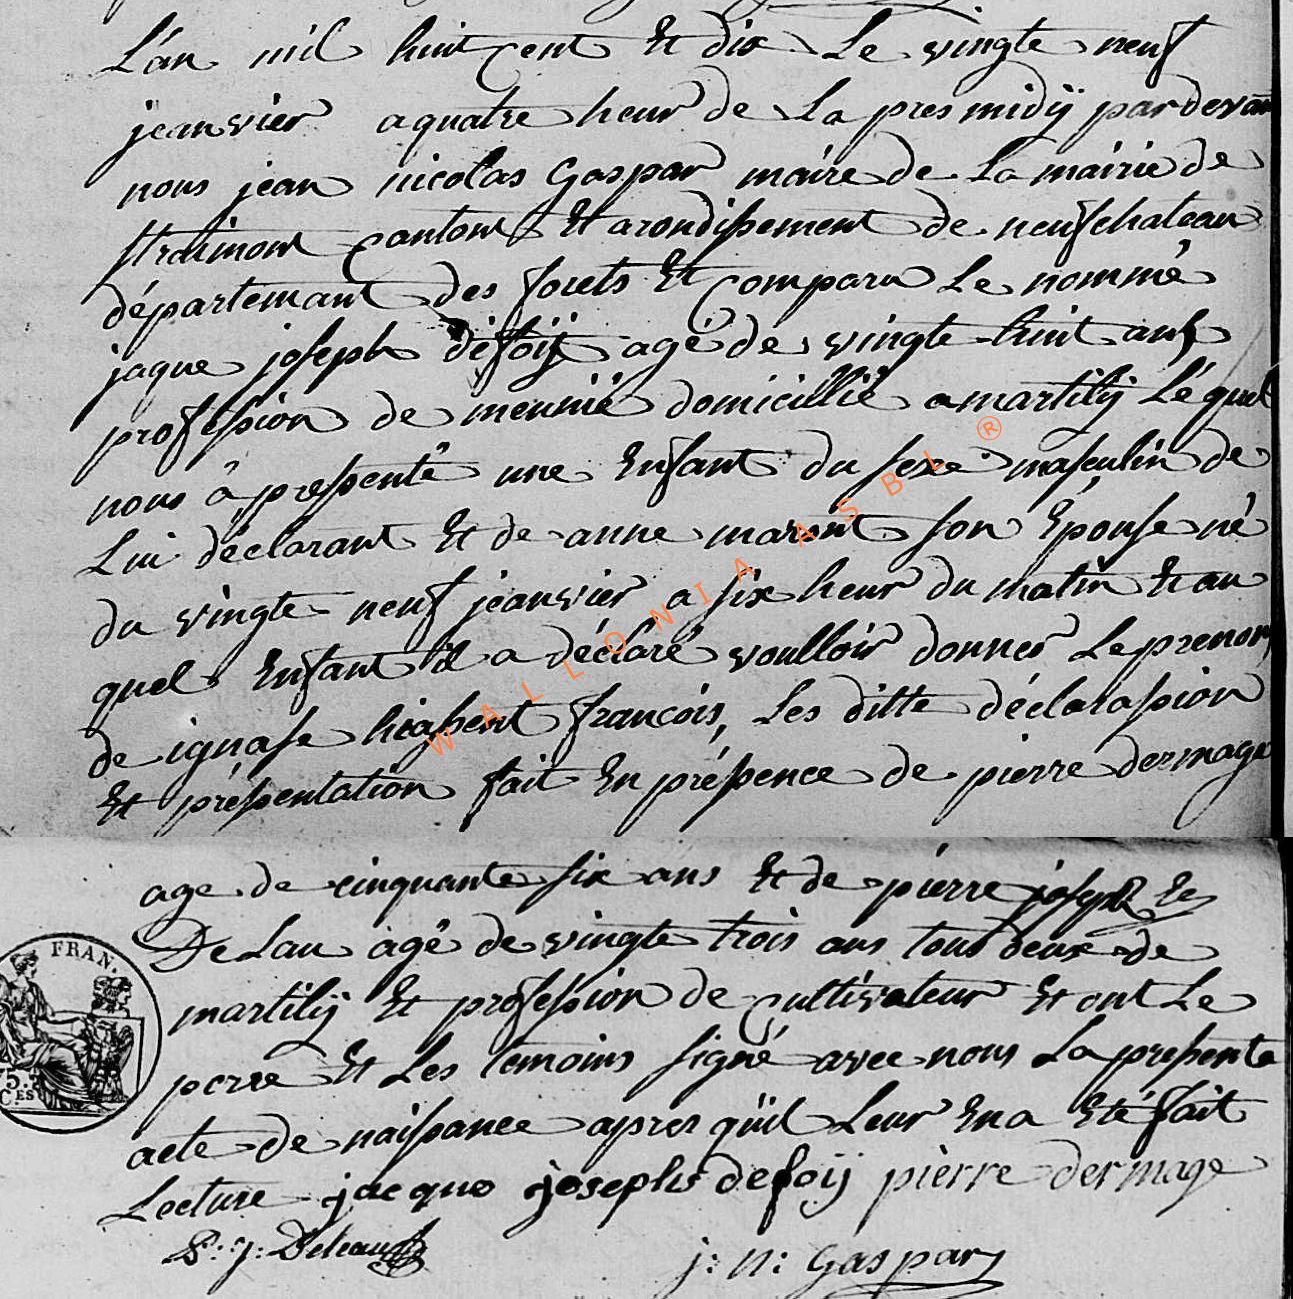 L'an mil huit cent et dix Le vingte neuf
jeanvier a quatre heur de La pres midÿ pardevan
nous jean nicolas Gaspar maire de La mairie de
straimont cantont Et arondissement de neufchateau
départemant des forets Et comparu Le nommé
jaque joseph defoij agé de vingte huit ans
profession de meunié domicillié a martilij Léquel
nous a pressenté une Enfant du sexe masculin de
Lui déclarant Et de anne maront son Épouse né
du vingte neuf jeanvier a six heur du matin Et au
quel Enfant il a déclaré voulloir donner Le prenom
de ignase hiassent francois, Les ditte déclarassion
Et préssentation fait En préssence de pierre dermage
age de cinquante six ans Et de pierre joseph
De Lau agé de vingte trois ans tous deux de
martilij Et profession de cultivateur Et ont Le
perre Et Les temoins signé avec nous La pressente
acte de naissance apres qüil Leur En a Eté fait
Lecture jacque joseph defoij pierre dermage
P: J: Deleau
j: N: Gaspar
FRAN.
75.
C.ES
WALLONIA ASBL ®